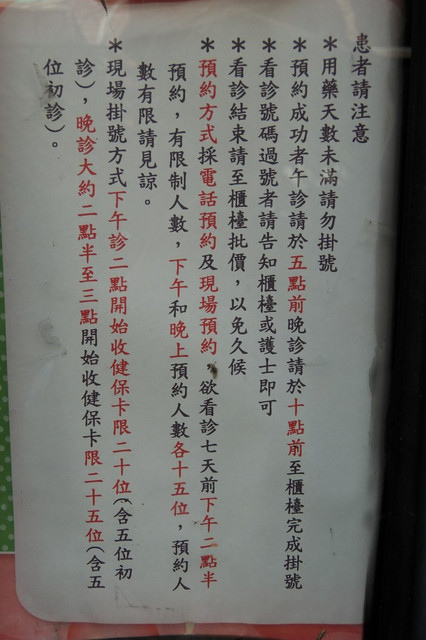 患者請注意
＊用藥天數未滿請勿掛號
＊預約成功者午診請於五點前晚診請於十點前至櫃檯完成掛號
＊看診號碼過號者請告知櫃檯或護士即可
＊看診結束請至櫃檯批價，以免久候
＊預約方式採電話預約及現場預約，欲看診七天前下午二點半
預約，有限制人數，下午和晚上預約人數各十五位，預約人
數有限請見諒。
＊現場掛號方式下午診二點開始收健保卡限二十位(含五位初
診)，晚診大約二點半至三點開始收健保卡限二十五位(含五
位初診)。